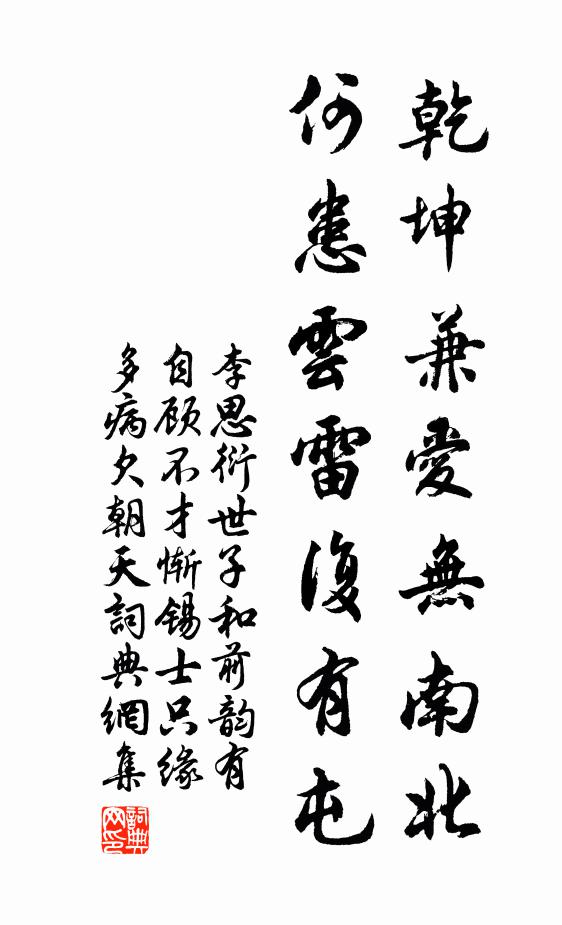 乾坤兼愛無南北
何患雲雷復有屯
李思衍世子和前韵有
自顾不才慚锡士只緣
多病久朝天詞典網集
詞典網印